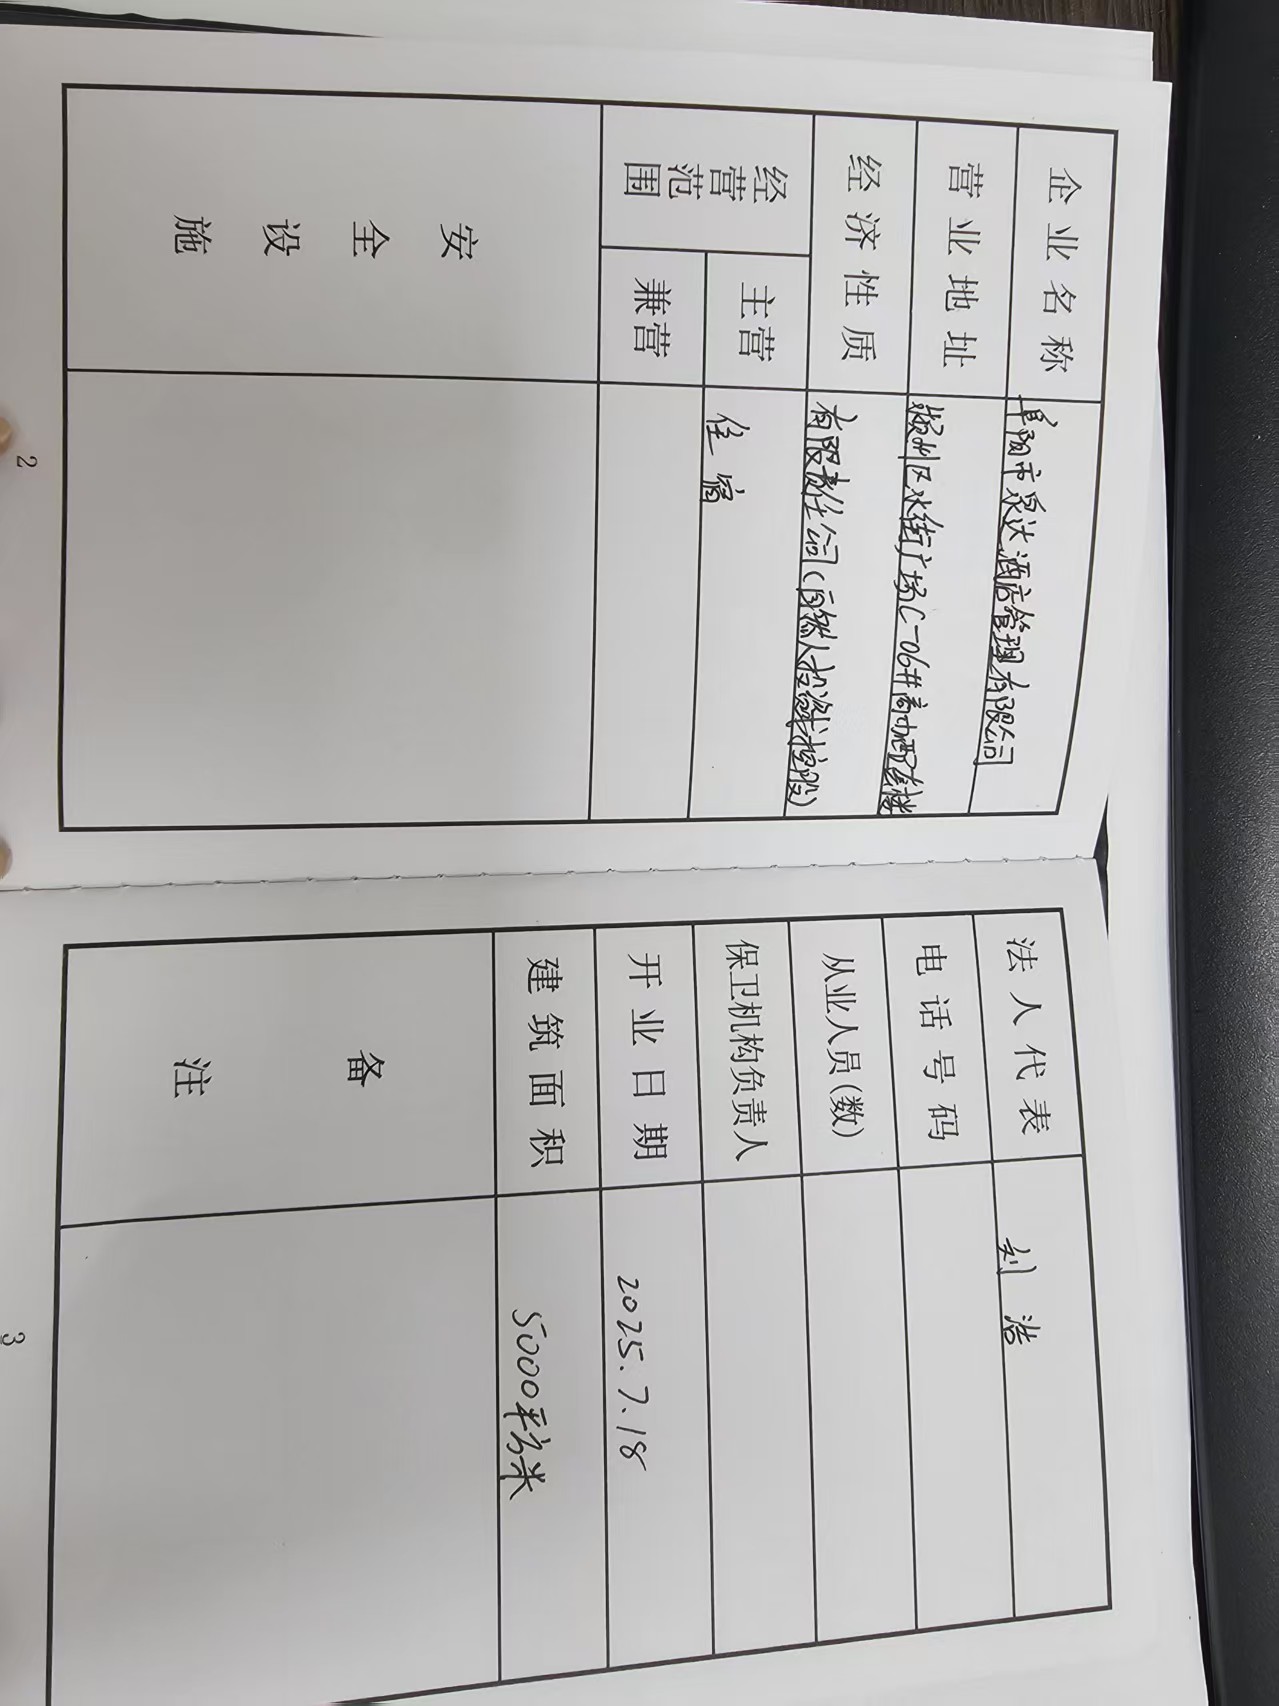 企业名称 阜阳市泉达酒店管理有限公司
营业地址 颍州区水街广场C-06#商办配套楼
经济性质 有限责任公司(自然人投资或控股)
经营范围 主营 住宿
兼营
安全设施
2
法人代表 刘浩
电话号码
从业人员(数)
保卫机构负责人
开业日期 2025.7.18
建筑面积 5000平方米
备注
3